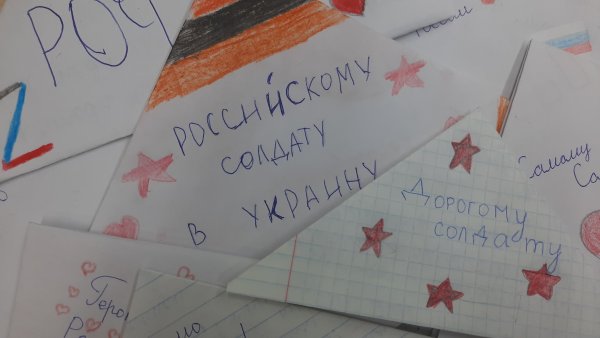 Z
РОССИЙСКОМУ
СОЛДАТУ
В УКРАИНУ
Дорогому
солдату
Самому